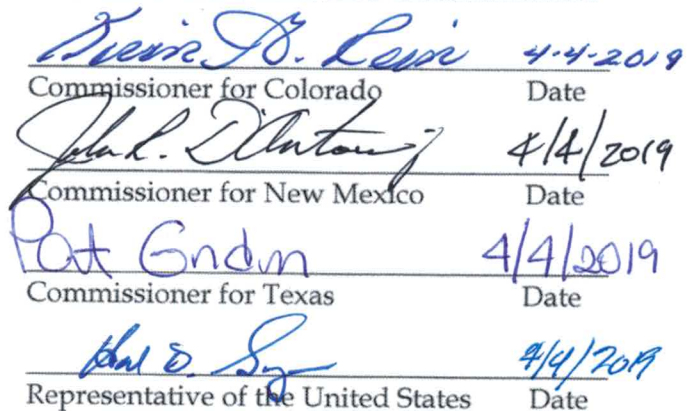 Kevin G. Rein 4-4-2019
Commissioner for Colorado Date
John R. D'Antonio Jr 4/4/2019
Commissioner for New Mexico Date
Pat Gordon 4/4/2019
Commissioner for Texas Date
Hal D. 4/4/2019
Representative of the United States Date